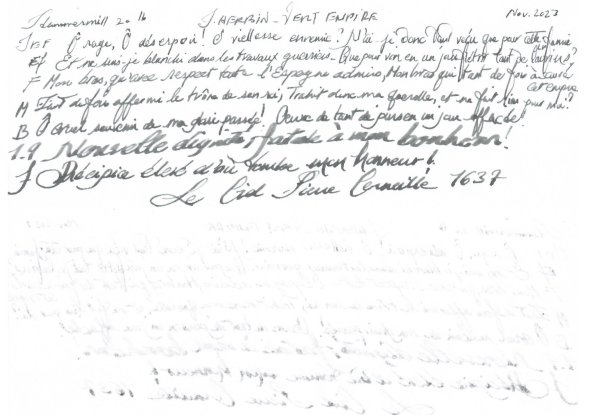 Hammermill 20 lb J. HERBIN - VERT EMPIRE Nov. 2023
EF O rage, Ô désespoir! O viellesse ennemie! N'ai-je donc tant vécu que pour cette infamie
EF Et ne suis-je blanchi dans les travaux guerriers Que pour voir en un jour flétrir tant de lauriers?
F Mon bras, qu'avec respect toute l'Espagne admire, Mon bras, qui tant de fois a sauvé cet empire
M Tant de fois affermi le trône de son roi, Trahit donc ma querelle, et ne fait rien pour moi?
B Ô cruel souvenir de ma gloire passée! Oeuvre de tant de jours en un jour effacée!
1.9 Nouvelle dignité, fatale à mon bonheur!
J Précipice élevé d'où tombe mon honneur!
Le Cid Pierre Corneille 1637